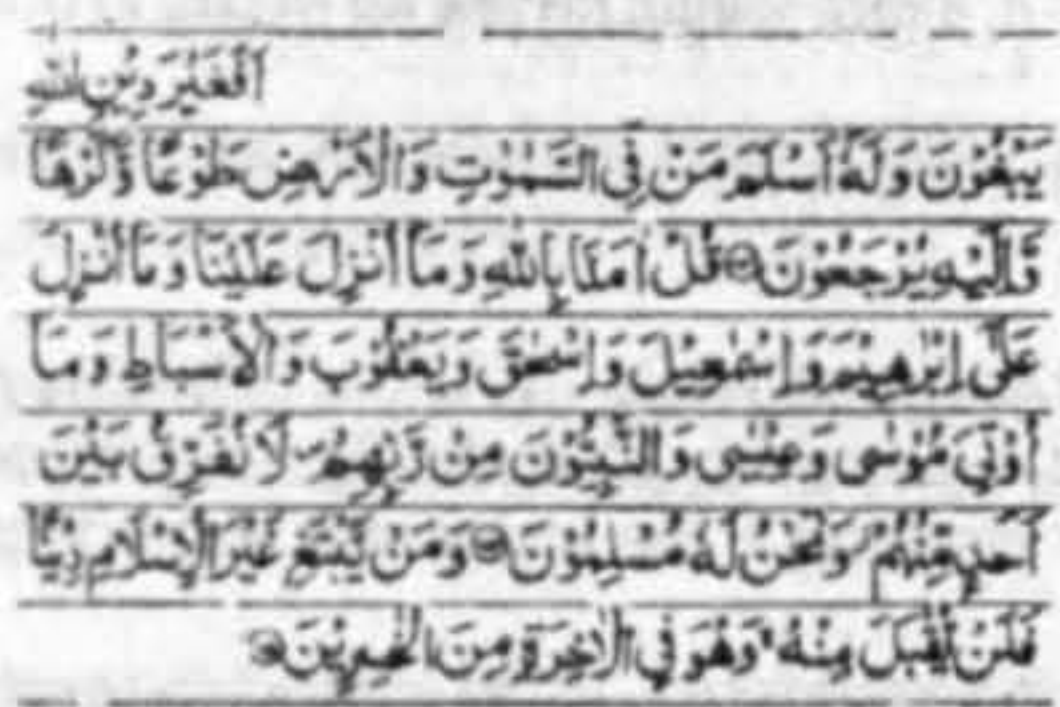 اَفَغَيْرَ دِيْنِ اللّٰهِ
يَبْغُوْنَ وَلَهٗۤ اَسْلَمَ مَنْ فِي السَّمٰوٰتِ وَالْاَرْضِ طَوْعًا وَّكَرْهًا
وَّاِلَيْهِ يُرْجَعُوْنَ ۝ قُلْ اٰمَنَّا بِاللّٰهِ وَمَاۤ اُنْزِلَ عَلَيْنَا وَمَاۤ اُنْزِلَ
عَلٰۤى اِبْرٰهِيْمَ وَاِسْمٰعِيْلَ وَاِسْحٰقَ وَيَعْقُوْبَ وَالْاَسْبَاطِ وَمَاۤ
اُوْتِيَ مُوْسٰى وَعِيْسٰى وَالنَّبِيُّوْنَ مِنْ رَّبِّهِمْ ۪ لَا نُفَرِّقُ بَيْنَ
اَحَدٍ مِّنْهُمْ ؗ وَنَحْنُ لَهٗ مُسْلِمُوْنَ ۝ وَمَنْ يَّبْتَغِ غَيْرَ الْاِسْلَامِ دِيْنًا
فَلَنْ يُّقْبَلَ مِنْهُ ۚ وَهُوَ فِي الْاٰخِرَةِ مِنَ الْخٰسِرِيْنَ ۝